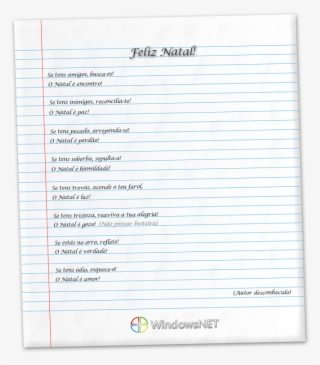 Feliz Natal!
Se tens amigos, busca-os!
O Natal é encontro!
Se tens inimigos, reconcilia-te!
O Natal é paz!
Se tens pecado, arrepende-se!
O Natal é perdão!
Se tens soberba, sepulta-a!
O Natal é humildade!
Se tens trevas, acende o teu farol,
O Natal é luz!
Se tens tristeza, reaviva a tua alegria!
O Natal é gozo! (Não pensar besteira)
Se estás no erro, reflete!
O Natal é verdade!
Se tens ódio, esquece-o!
O Natal é amor!
(Autor desconhecido)
WindowsNET